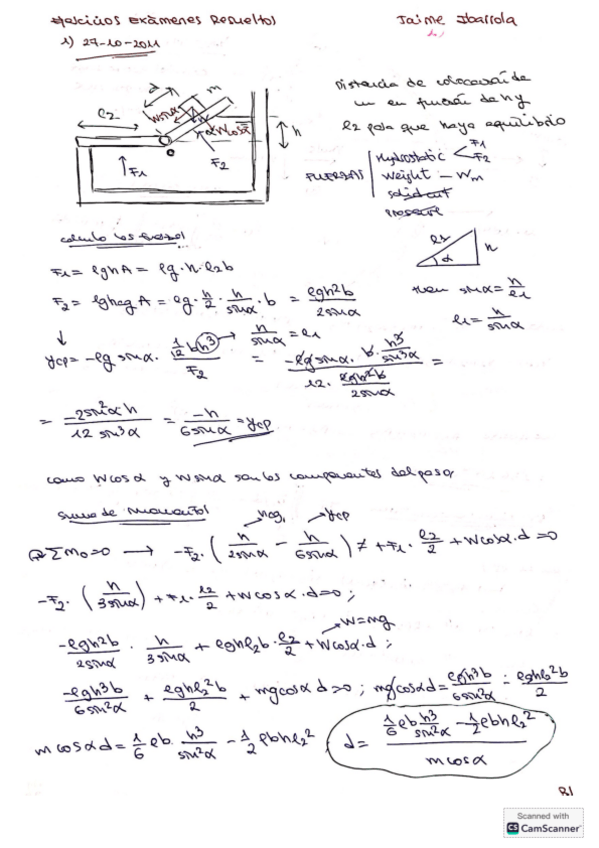 Ejercicios Exámenes Resueltos
Jaime Ibarrola
1) 27-10-2011
Distancia de colocación de
m en función de h y
l2 para que haya equilibrio
d
m
l2
Wsinα
Wcosα
h
F1
F2
o
FUERZAS
Hydrostatic F1 F2
Weight - Wm
calculo las fuerzas
F1 = ρghA = ρg·h·l2b
F2 = ρghcg A = ρg·h/2·h/sinα·b = ρgh²b/2sinα
l1
h
α
then sinα = h/l1
l1 = h/sinα
ycp = -ρg sinα · (1/12 b h³)/F2 → h/sinα = l1 = (-ρg sinα · b · h³/sin³α)/(12 · ρgh²b/2sinα) =
= -2sin²α h/12 sin³α = -h/6sinα = ycp
como Wcosα y Wsinα son los componentes del peso
Suma de Momentos
hcg, ycp
ΣMo=0 → -F2·(h/2sinα - h/6sinα) + F1·l2/2 + Wcosα·d = 0
-F2·(h/3sinα) + F1·l2/2 + Wcosα·d = 0;
W=mg
-ρgh²b/2sinα · h/3sinα + ρghl2b·l2/2 + Wcosα·d;
-ρgh³b/6sin²α + ρghl2²b/2 + mgcosα d = 0; mgcosαd = ρgh³b/6sin²α - ρghl2²b/2
m cosα d = 1/6 ρb·h³/sin²α - 1/2 ρbhl2²
d = (1/6 ρb h³/sin²α - 1/2 ρbhl2²)/(m cosα)
R1
Scanned with
CS CamScanner